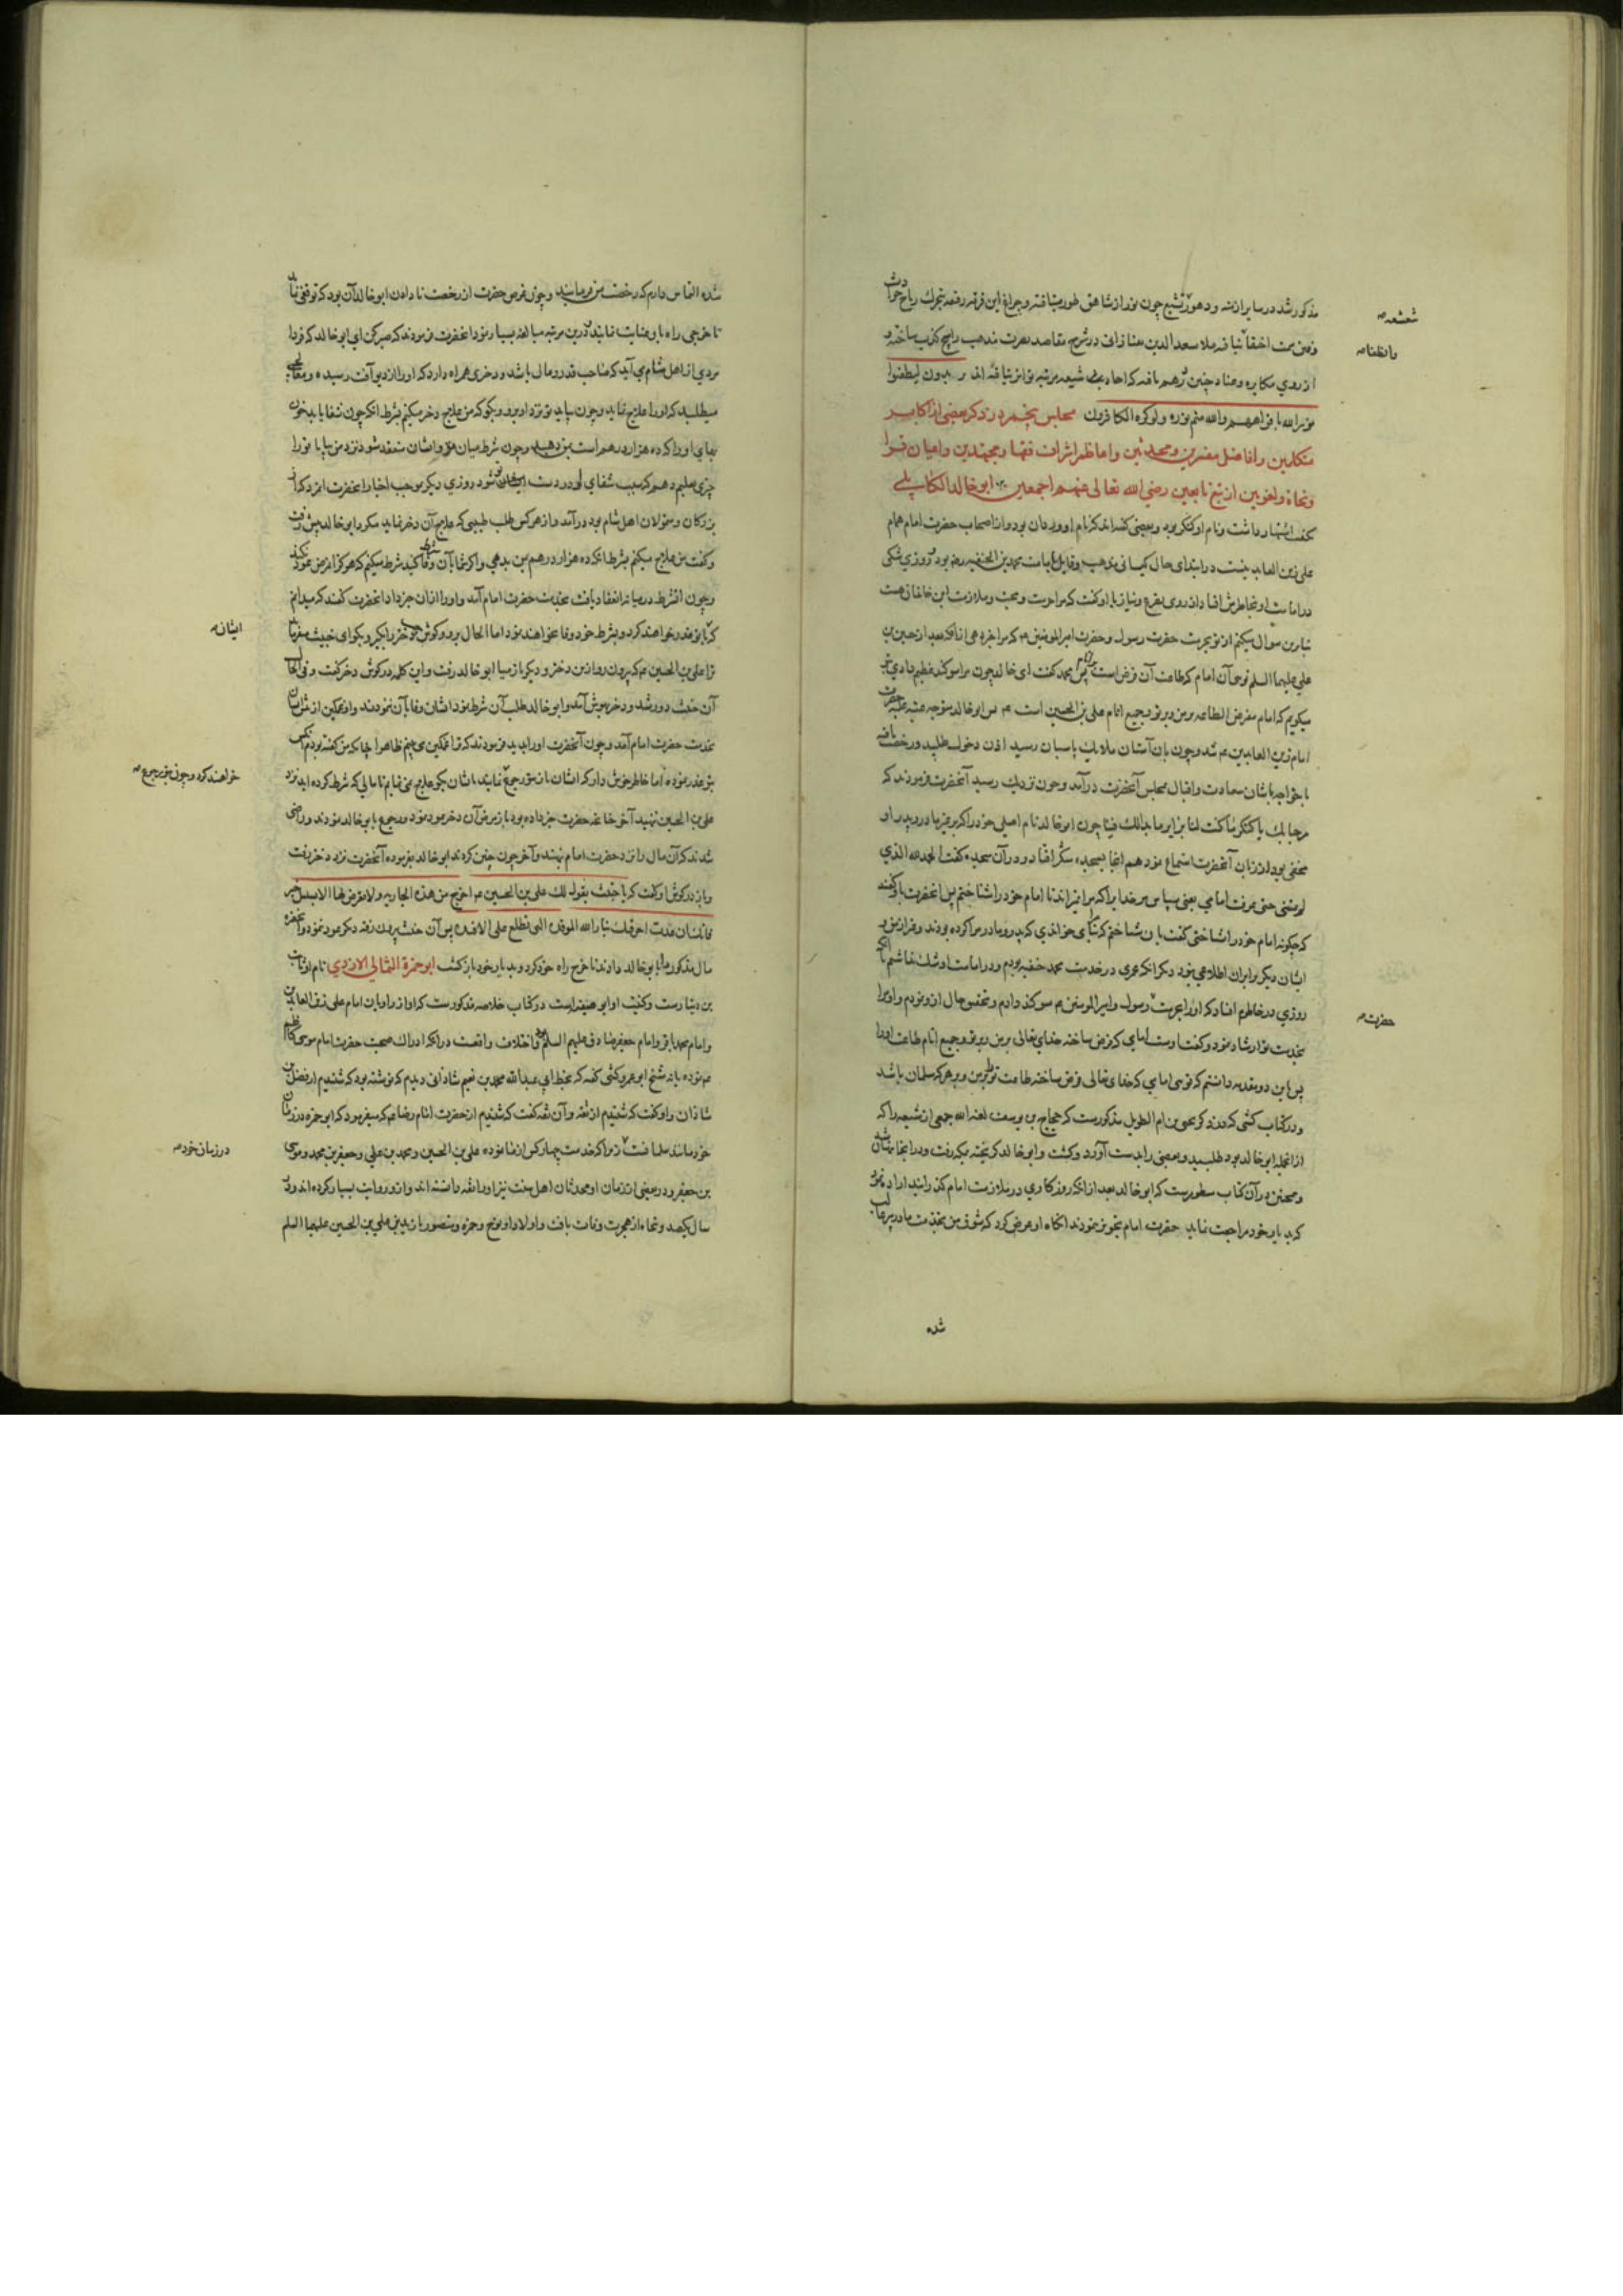 مذکور شد در سایر ازمنه و دهور تشیع چون نور از شاهق طور میتافته و چراغ این فرقه رفعه بتحرک ریاح حوادث
شعشعه
وانطفا
نور الله بافواههم والله متم نوره ولو کره الکافرون مجلس پنجم در ذکر بعضی از اکابر
متکلمین و افاضل مفسرین و محدثین و اعاظم اشراف فقها و مجتهدین و اعیان قرا
و نحاة و لغویین از تبع تابعین رضی الله تعالی عنهم اجمعین ابو خالد الکابلی
کنف اشتهار داشت و نام او کنکر بود و بعضی گفته‌اند که نام او وردان بود و از اصحاب حضرت امام همام
علی زین العابدینست در ابتدای حال کیسانی مذهب و قایل بامامت محمد بن الحنفیه رضه بود و روزی شکی
در امامت او بخاطرش افتاد از روی تضرع و نیاز با او گفت که مرا حرمت و محبت و ملازمت این خاندان هست
بنابرین سوال میکنم از تو بحرمت حضرت رسول و حضرت امیر المومنین که مرا خبر دهی
علی علیهما السلم توئی آن امام که طاعت آن فرض است پس محمد گفت ای خالد چون مرا سوگند عظیم دادی
میگویم که امام مفترض الطاعه بر من و بر تو و جمیع انام علی بن الحسین است پس ابو خالد متوجه عتبه علیه حضرت
امام زین العابدین شد و چون بان آستان ملایک پاسبان رسید اذن دخول طلبید و رخصت یافته
با خواجه‌تاشان سعادت و اقبال بمجلس آنحضرت درآمد و چون نزدیک رسید آنحضرت فرمودند که
مرحبا بک یا کنکر ما کنت لنا بزایر ما بدالک فینا چون ابو خالد نام اصلی خود را که بر غیر مادر و پدر او
مخفی بود از زبان آنحضرت استماع نمود هم آنجا بسجده شکر افتاد و در آن سجده گفت الحمد لله الذی
لم یمتنی حتی عرفت امامی یعنی سپاس مر خدایرا که مرا نمیراند تا امام خود را شناختم پس آنحضرت با او گفتند
که چگونه امام خود را شناختی گفت بآن شناختم که مرا بنامی خواندی که پدر و مادر مرا کرده بودند و غیر از من و
ایشان دیگر بر آن اطلاعی نبود دیگر آنکه عمری در خدمت محمد حنفیه بودم و در امامت او شک نداشتم تا آنکه
روزی در خاطرم افتاد که او را بحرمت رسول و امیر المومنین سوگند دادم و تحقیق حال از او نمودم و او مرا
بخدمت تو ارشاد نمود و گفت اوست امامی که فرض ساخته خدای تعالی بر من و بر تو و جمیع انام طاعت او را
حضرت
پس باین دو مقدمه دانستم که توئی امامی که خدای تعالی فرض ساخته طاعت تو را بر من و بر هر که مسلمان باشد
و در کتاب کشی در ذکر یحیی بن ام الطویل مذکورست که حجاج بن یوسف لعنه الله جمعی از شیعه را که
از آنجمله ابو خالد بود طلبید و بعضی را بدست آورد و کشت و ابو خالد گریخته بمکه رفت و در آنجا پنهان شد
و همچنین در آن کتاب مسطورست که ابو خالد بعد از آنکه روزگاری در ملازمت امام گذرانید اراده نمود
که بدیار خود مراجعت نماید حضرت امام تجویز ننمودند آنگاه او عرض کرد که شوق من بخدمت مادر پیر غالب
شده
شده التماس دارم که رخصت من فرمایند و چون غرض حضرت از رخصت نا دادن ابو خالد آن بود که توقفی نماید
تا خرجی راه باو عنایت نمایند درین مرتبه مبالغه بسیار نمود آنحضرت فرمودند که صبر کن ای ابو خالد که فردا
مردی از اهل شام می‌آید که صاحب قدر و مال باشد و دختری همراه دارد که او را از دیو آفت رسیده و معالجی
میطلبد که او را علاج نماید و چون بیاید تو نزد او برو و بگو که من علاج دختر میکنم بشرط آنکه چون شفا یابد خون
بهای او را که ده هزار درهم است بمن دهید و چون شرط میان تو و ایشان منعقد شود نزد من بیا تا تو را
چیزی تعلیم دهم که سبب شفای او در دست تو شود روزی دیگر موجب اخبار آنحضرت مردی از
بزرگان و متمولان اهل شام بود درآمد و از هر کس طلب طبیبی که علاج آن دختر نماید میکرد ابو خالد پیش رفت
و گفت من علاج میکنم بشرط آنکه ده هزار درهم بمن بدهی و اگر شما بآن وفا کنید شرط میکنم که هرگز آن مرض عود نکند
و چون آنشرط در میانه انعقاد یافت بخدمت حضرت امام آمد و او را از آن خبر داد آنحضرت گفتند که میدانم
که با تو غدر خواهند کرد و بشرط خود وفا نخواهند نمود اما الحال برو و گوش چپ دختر را بگیر و بگو ای خبیث میفرماید
ایشان
ترا علی بن الحسین که بیرون رو از بدن دختر و دیگر باز میا ابو خالد رفت و این کلمه در گوش دختر گفت و فی الحال
آن خبیث دور شد و دختر بهوش آمد و ابو خالد طلب آن شرط نمود ایشان وفا بآن ننمودند و او غمگین از پیش ایشان
بخدمت حضرت امام آمد و چون آنحضرت او را بدید فرمودند که ترا غمگین می‌بینم ظاهرا چنانکه من گفته بودم آنکس
بتو غدر نموده اما خاطر خوش دار که ایشان باز بتو رجوع نمایند بایشان بگو علاج نمی‌نمایم تا مالی که شرط کرده‌اید نزد
خواهند کرد و چون بتو رجوع
علی بن الحسین ننهید آخر چنانچه حضرت خبر داده بود باز مرض آن دختر عود نمود و رجوع بابو خالد نمودند و راضی
شدند که آن مال را نزد حضرت امام بنهند و آخر چون چنین کردند ابو خالد بفرموده آنحضرت نزد دختر رفت
و باز در گوش او گفت که یا خبیث یقول لک علی بن الحسین اخرج من هذه الجاریه ولا تعرض لها الا بسبیل خیر
فانک ان عدت احرقتک بنار الله الموقدة التی تطلع علی الافئده پس آن خبیث بیرون رفته دیگر عود ننمود و آنحضرت
مال مذکور را بابو خالد دادند تا خرج راه خود کرد و بدیار خود بازگشت ابو حمزة الثمالی الازدی نام او ثابت
بن دینارست و کنیت او ابو صفیه است در کتاب خلاصه مذکورست که او از راویان امام علی زین العابدین
و امام محمد باقر و امام جعفر صادق علیهم السلم بوده و اختلاف واقعست در آنکه ادراک صحبت حضرت امام موسی کاظم
نموده یا نه شیخ ابو عمرو کشی گفته که بخط ابی عبد الله محمد بن نعیم شاذانی دیدم که نوشته بود که شنیدم از فضل بن
شاذان و او گفت که شنیدم از ثقه و آن ثقه گفت که شنیدم از حضرت امام رضا که میفرمود که ابو حمزه در زمان
خود مانند سلمانست زیرا که خدمت چهار کس از ما نموده علی بن الحسین و محمد بن علی و جعفر بن محمد و موسی
در زمان خود
بن جعفر و در بعضی از زمان او محدثان اهل سنت نیز او را ثقه دانسته‌اند و از و روایت بسیار کرده‌اند و در
سال یکصد و پنجاه از هجرت وفات یافت و اولاد او نوح و حمزه و منصور با زید بن علی بن الحسین علیهما السلم